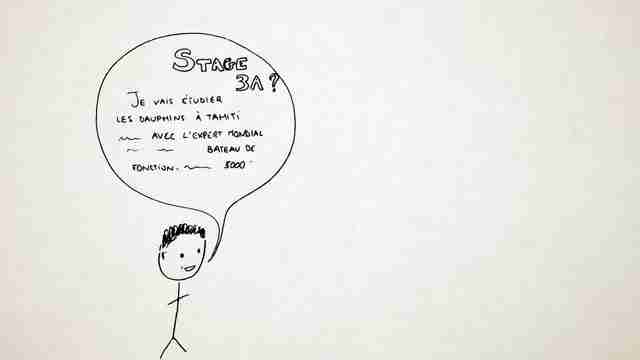 STAGE
3A ?
JE VAIS ÉTUDIER
LES DAUPHINS À TAHITI
AVEC L'EXPERT MONDIAL
BATEAU DE
FONCTION. 5000